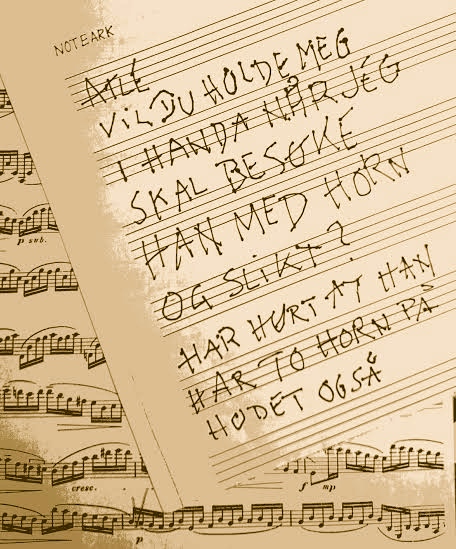 NOTEARK
ATLE
VIL DU HOLDE MEG
I HANDA NÅR JEG
SKAL BESØKE
HAN MED HORN
OG SLIKT?
HAR HØRT AT HAN
HAR TO HORN PÅ
HODET OGSÅ
p sub.
cresc.
f mp
p